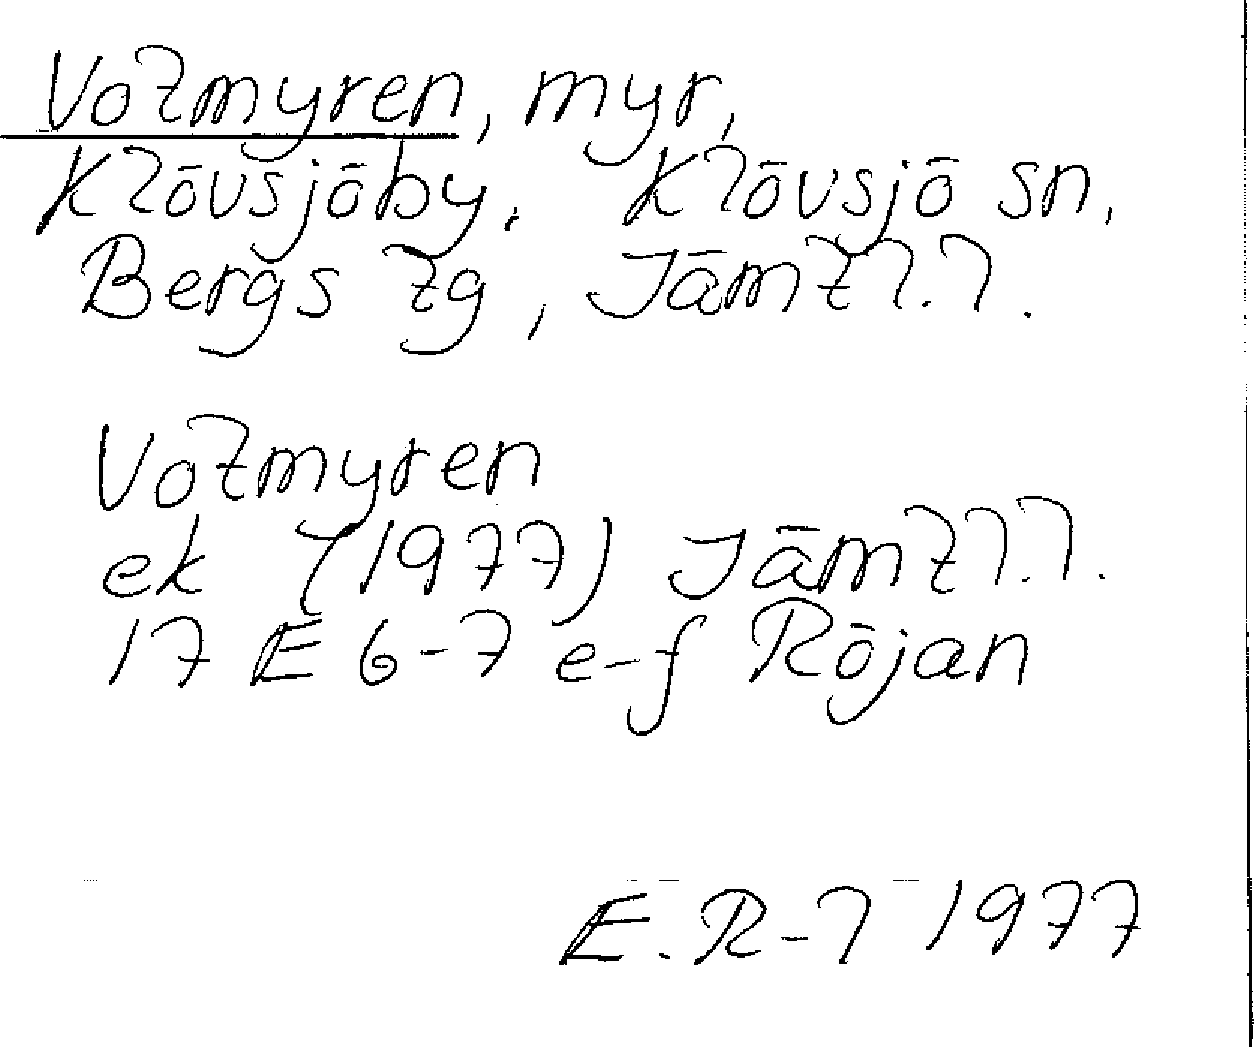 Votmyren, myr,
Klövsjöby, Klövsjö sn,
Bergs tg, Jämtl.l.
Votmyren
ek (1977) Jämtl.l.
17 E 6-7 e-f Röjan
E. R-l 1977